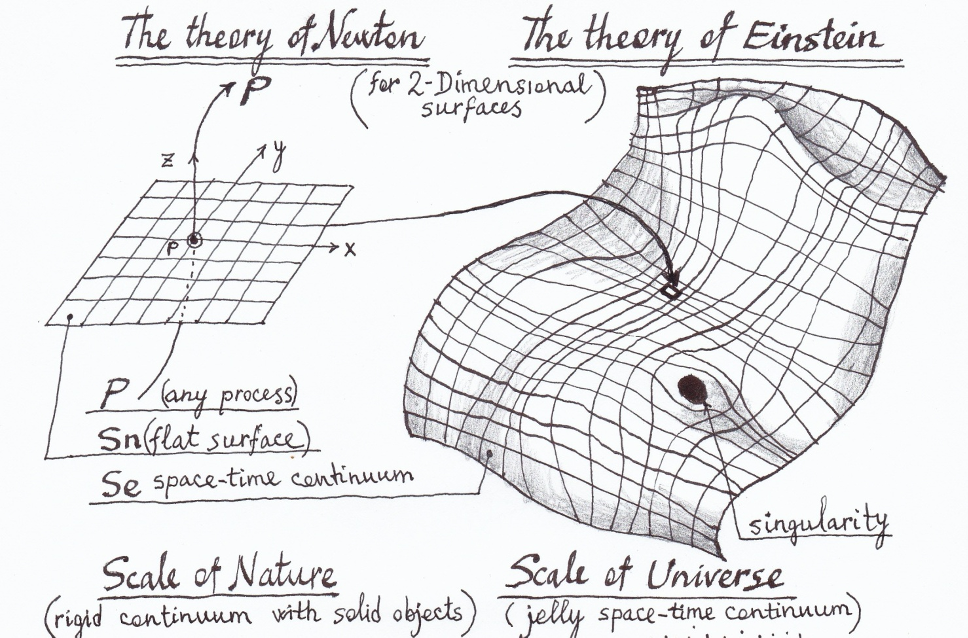 The theory of Newton
The theory of Einstein
(for 2-Dimensional
surfaces)
P
z
y
P
x
P (any process)
Sn (flat surface)
Se space-time continuum
singularity
Scale of Nature
(rigid continuum with solid objects)
Scale of Universe
(jelly space-time continuum)